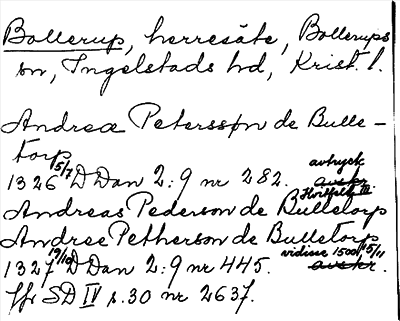 Bollerup, herresäte, Bollerups
sn, Ingelstads hd, Krist. l.
Andrea Petersspn de Bulle-
torp
1326 15/7 D Dan 2:9 nr 282. avtryck avskr.
Hvitfeldt III.
Andreas Pederson de Bulletorp
Andree Petherson de Bulletorp
1327 19/10 D Dan 2:9 nr 445. vidisse 1500 15/11 avskr.
Jfr SD IV s. 30 nr 2637.